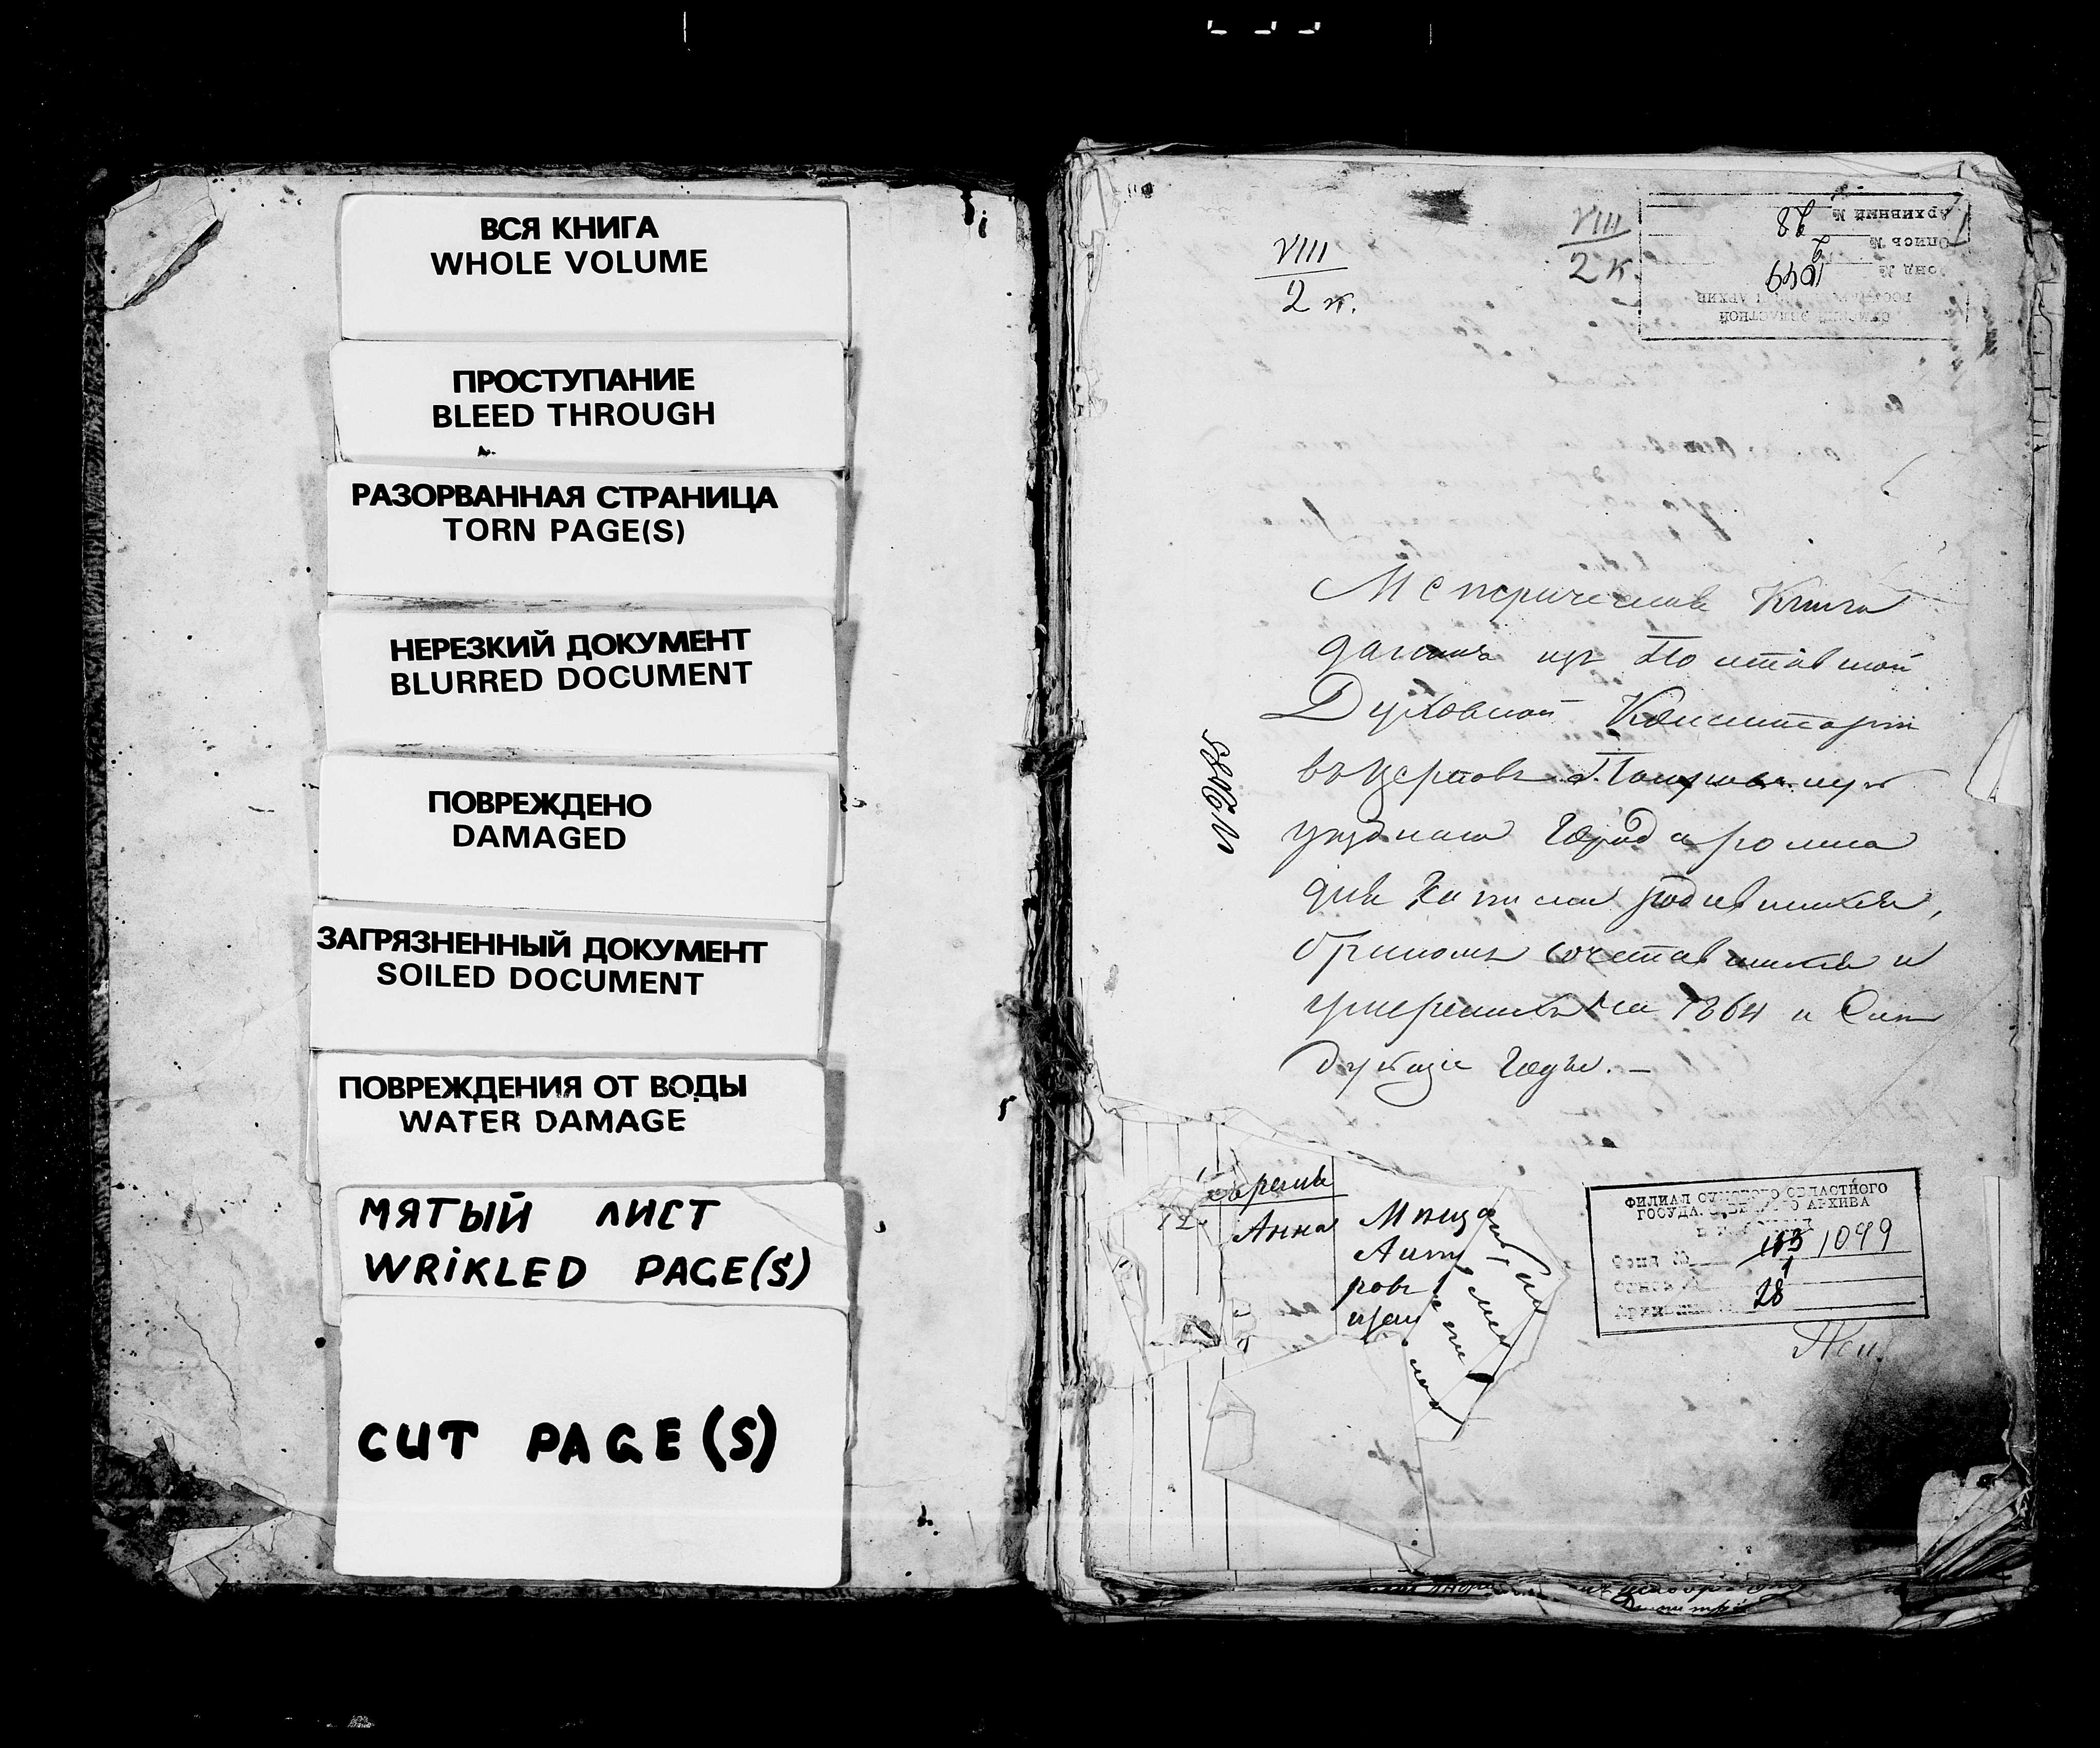 ВСЯ КНИГА
WHOLE VOLUME
ПРОСТУПАНИЕ
BLEED THROUGH
РАЗОРВАННАЯ СТРАНИЦА
TORN PAGE(S)
НЕРЕЗКИЙ ДОКУМЕНТ
BLURRED DOCUMENT
ПОВРЕЖДЕНО
DAMAGED
ЗАГРЯЗНЕННЫЙ ДОКУМЕНТ
SOILED DOCUMENT
ПОВРЕЖДЕНИЯ ОТ ВОДЫ
WATER DAMAGE
МЯТЫЙ ЛИСТ
WRiKLED PAGE(S)
CUT PAGE(S)
VIII
2 к.
VIII
2 к.
Архивный № 28
Опись № 2
Фонд № 1049
Метрическая Книга
данная изъ Полтавской
Духовной Консисторіи
въ Церковь
уезднаго Города Ромна
для Записи родившихся,
бракомъ сочетавшихся и
умершихъ на 1864 и
годы. —
№ 2085
Анна
ФИЛИАЛ СУМСКОГО ОБЛАСТНОГО
ГОСУДАРСТВЕННОГО АРХИВА
Фонд № 1049
Опись № 1
28